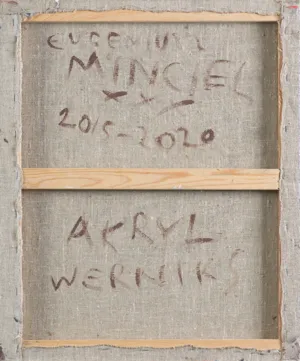 EUGENIUSZ
MINCIEL
XXX
2015-2020
AKRYL
WERNIKS